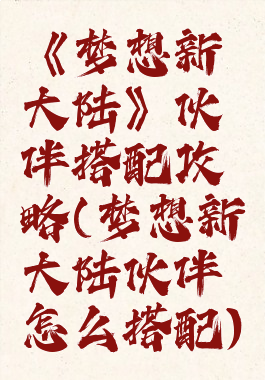 《梦想新
大陆》伙
伴搭配攻
略(梦想新
大陆伙伴
怎么搭配)